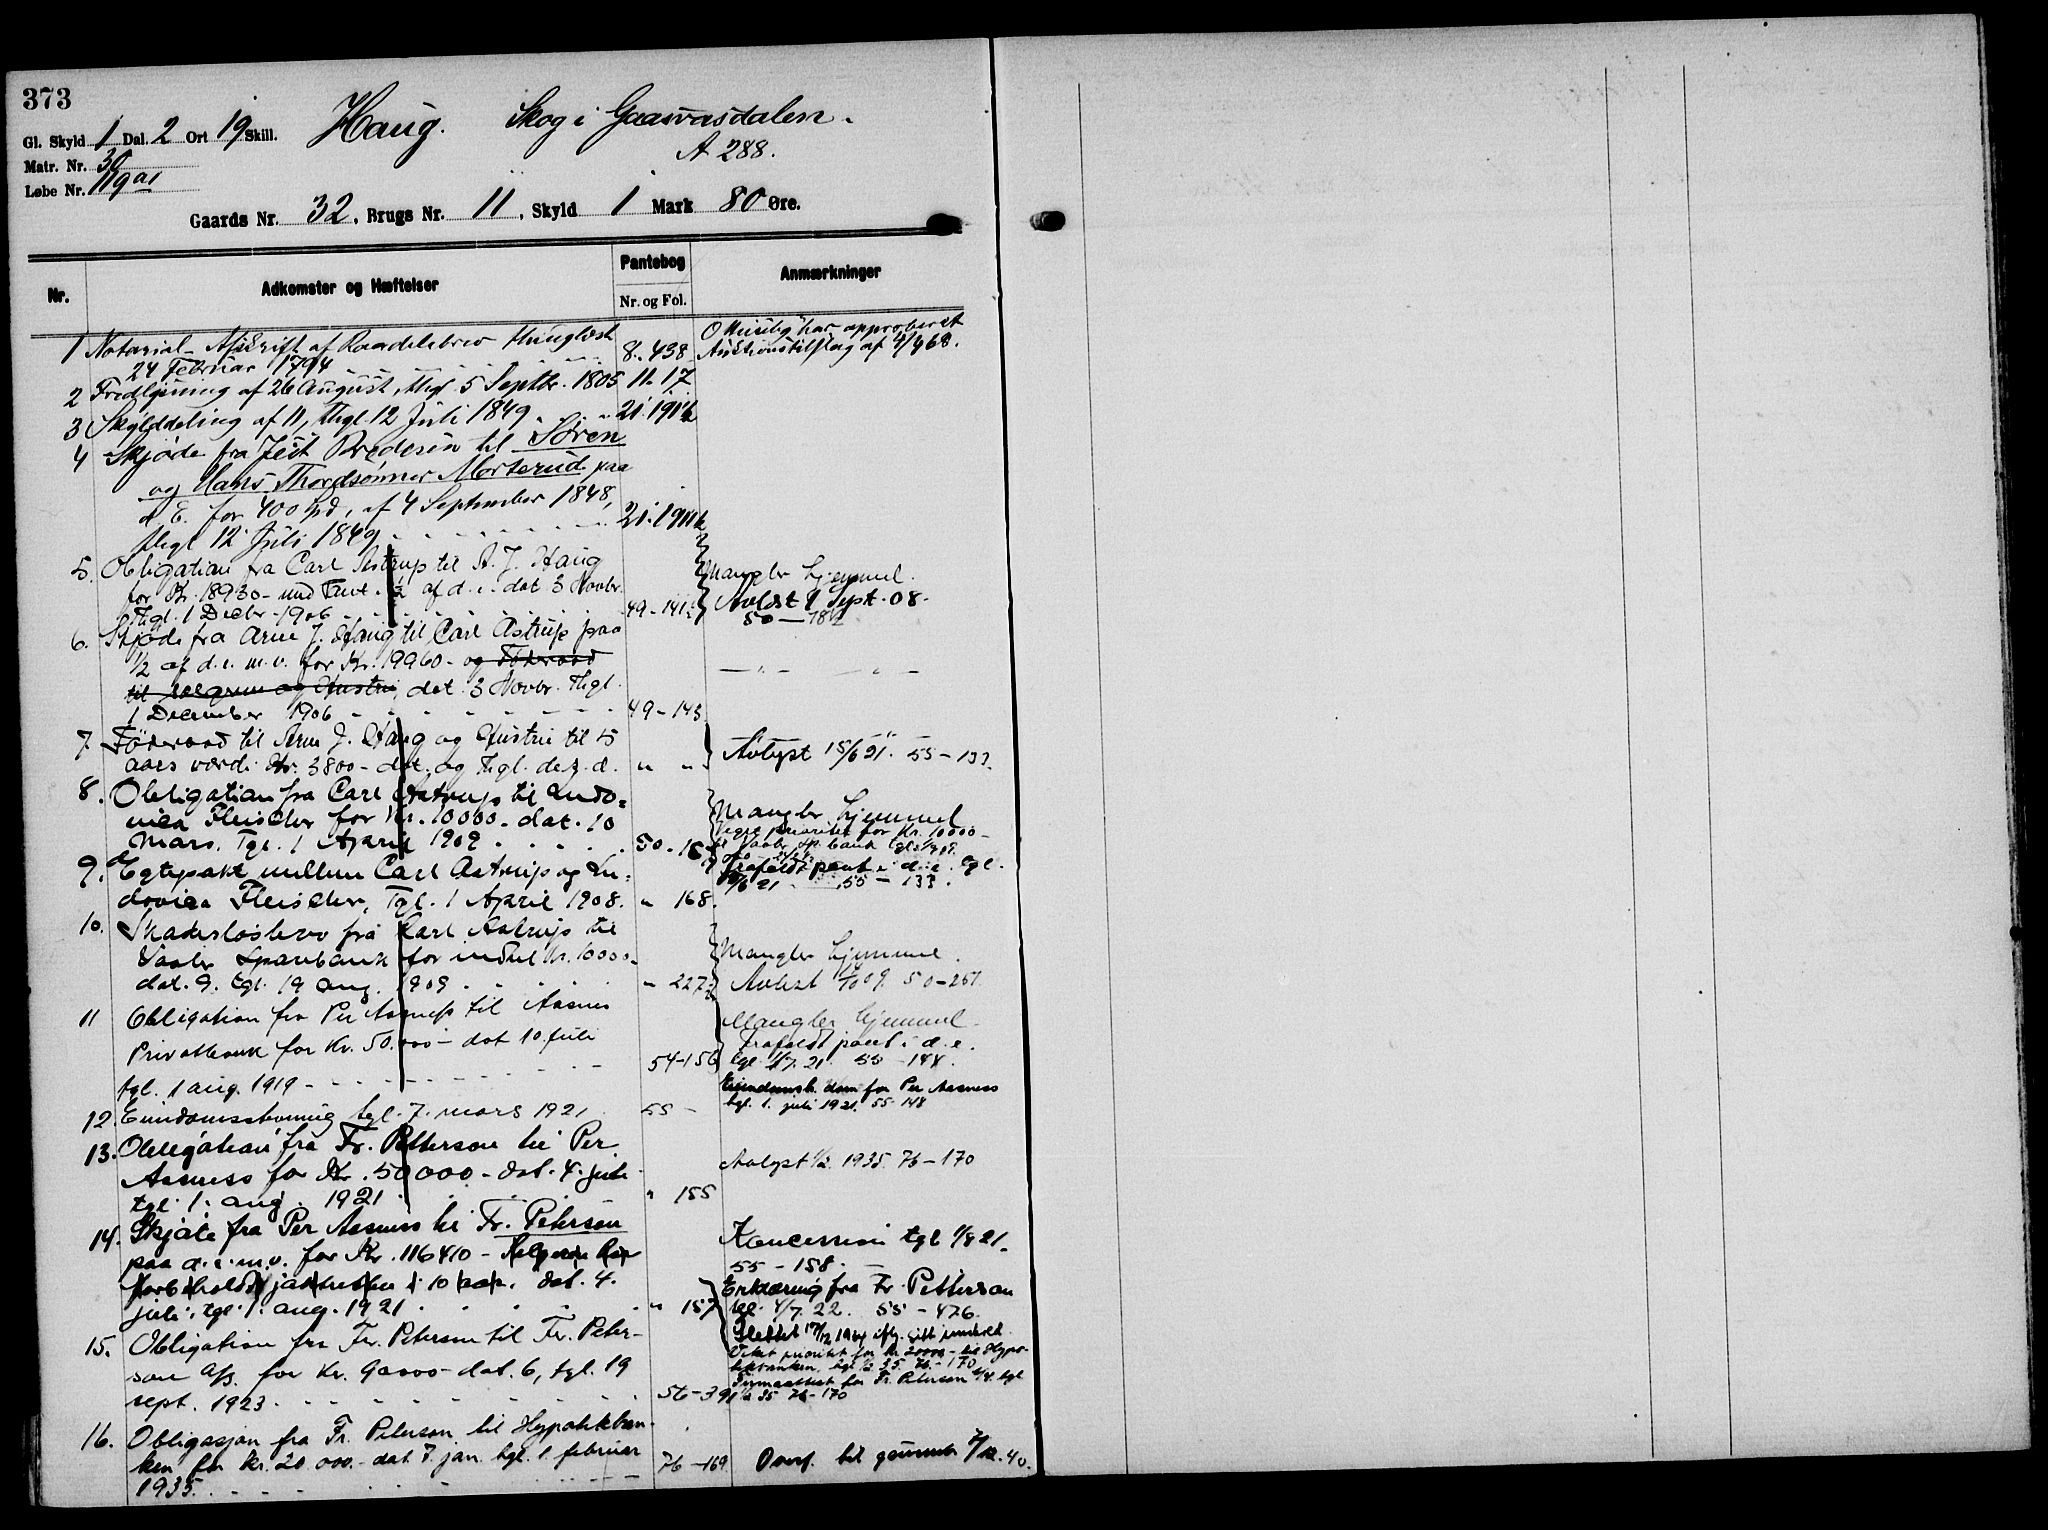 373
Gl. Skyld 1 Dal. 2 Ort 19 Skill. Haug. Skog i Gaasvasdalen.
Matr. Nr. 30 A 288.
Løbe Nr. 119 a1
Gaards Nr. 32, Brugs Nr. 11, Skyld 1 Mark 80 Øre.
Nr. Adkomster og Hæftelser Pantebog Anmærkninger
Nr. og Fol.
1 Notarial-Afskrift af thinglæst 8. 438
24 Februar 1794
har approberet
Auktionstilslag af
2 Fredlysning af 26 August, thgl. 5 Septbr. 1805 11. 17
3 Skylddeling af 11, thgl. 12 Juli 1849 21. 191
4 Skjøde fra til Søren
og Hans Thordsønner Morterud paa
d. E. for 400 Spd, af 4 September 1848,
thgl 12 Juli 1849 21. 191
5. Obligation fra Carl Astrup til A. J. Haug
for Kr. 18930 - med Pant i 1/2 af d. e. dat 3 Novbr.
Thgl. 1 Decbr. 1906 49 - 141
Mangler hjemmel.
Avlöst 1 Sept. 08.
50 —
6. Skjöde fra Arne J. Haug til Carl Astrup paa
1/2 af d. e. m. v. for Kr. 19960 - og Föderaad
til og Hustru, dat. 3 Novbr. Thgl.
1 December 1906 49 - 143
— „ — „ —
7. Föderaad til Arne J. Haug og Hustru til 5
aars værdi Kr. 3800 - dat. og Thgl. d. " "
Avlyst 15/6 21. 55 - 133.
8. Obligation fra Carl Astrup til Ludo=
vica Fleischer for Kr. 10000 - dat. 10
Mars, Tgl. 1 April 1908 50 -
Mangler hjemmel
prioritet for Kr. 10000 -
Vaaler Sp. bank
Frafaldt pant i d. e. tgl.
21 55 - 133.
9. Egtepakt mellem Carl Astrup og Lu=
dovica Fleischer, Tgl. 1 April 1908. " 168.
10. Skadesløsbrev fra Carl Astrup til
Vaaler Sparebank for indtil Kr. 10000 -
dat. 9. tgl. 19 aug. 1909 " 227
Mangler hjemmel.
Avlest 09. 50 - 251.
11 Obligation fra Per Aasnes til Aasnes
Privatbank for Kr. 50.000 - dat 10 juli
tgl. 1 aug. 1919 54 - 156
Mangler hjemmel
Frafaldt pant i d. e.
tgl. 1/7. 21. 55 - 144.
12. Eiendomsstevning tgl. 7. mars 1921 55 -
Eiendomsh. dom for Per Aasness
tgl. 1. juli 1921. 55 148
13. Obligation fra Fr. Petterson til Per
Aasness for Kr. 50000 - dat. 4. juli
tgl. 1. aug. 1921 " 155
Avlyst 1/2. 1935. 76 - 170
14. Skjøte fra Per Aasness til Fr. Peterson
paa d. e. m. v. for Kr. 116410 - Selgeren har
forbeholdt jaktretten i 10 aar. dat. 4.
juli, tgl. 1. aug. 1921 " 157
Koncession tgl 1/8 21.
55 - 158.
Erklæring fra Fr. Petterson
tgl. 4/7. 22. 55 - 476.
Slettet 17/12
15. Obligation fra Fr. Peterson til Fr. Peter-
son A/s. for Kr. 90000 - dat. 6, tgl. 19
sept. 1923 56 - 39
Veket prioritet for kr 20000 - til Hypo-
tekbanken, tgl. 1/2 35. 76 - 170
Firmaattest for Fr. Peterson tgl.
1/2 35 76 - 170
16. Obligasjon fra Fr. Peterson til Hypotekban-
ken for kr. 20 000. - dat. 7. jan. tgl. 1. februar
1935. 76 - 169
Overf. til grunnb 12. 40.